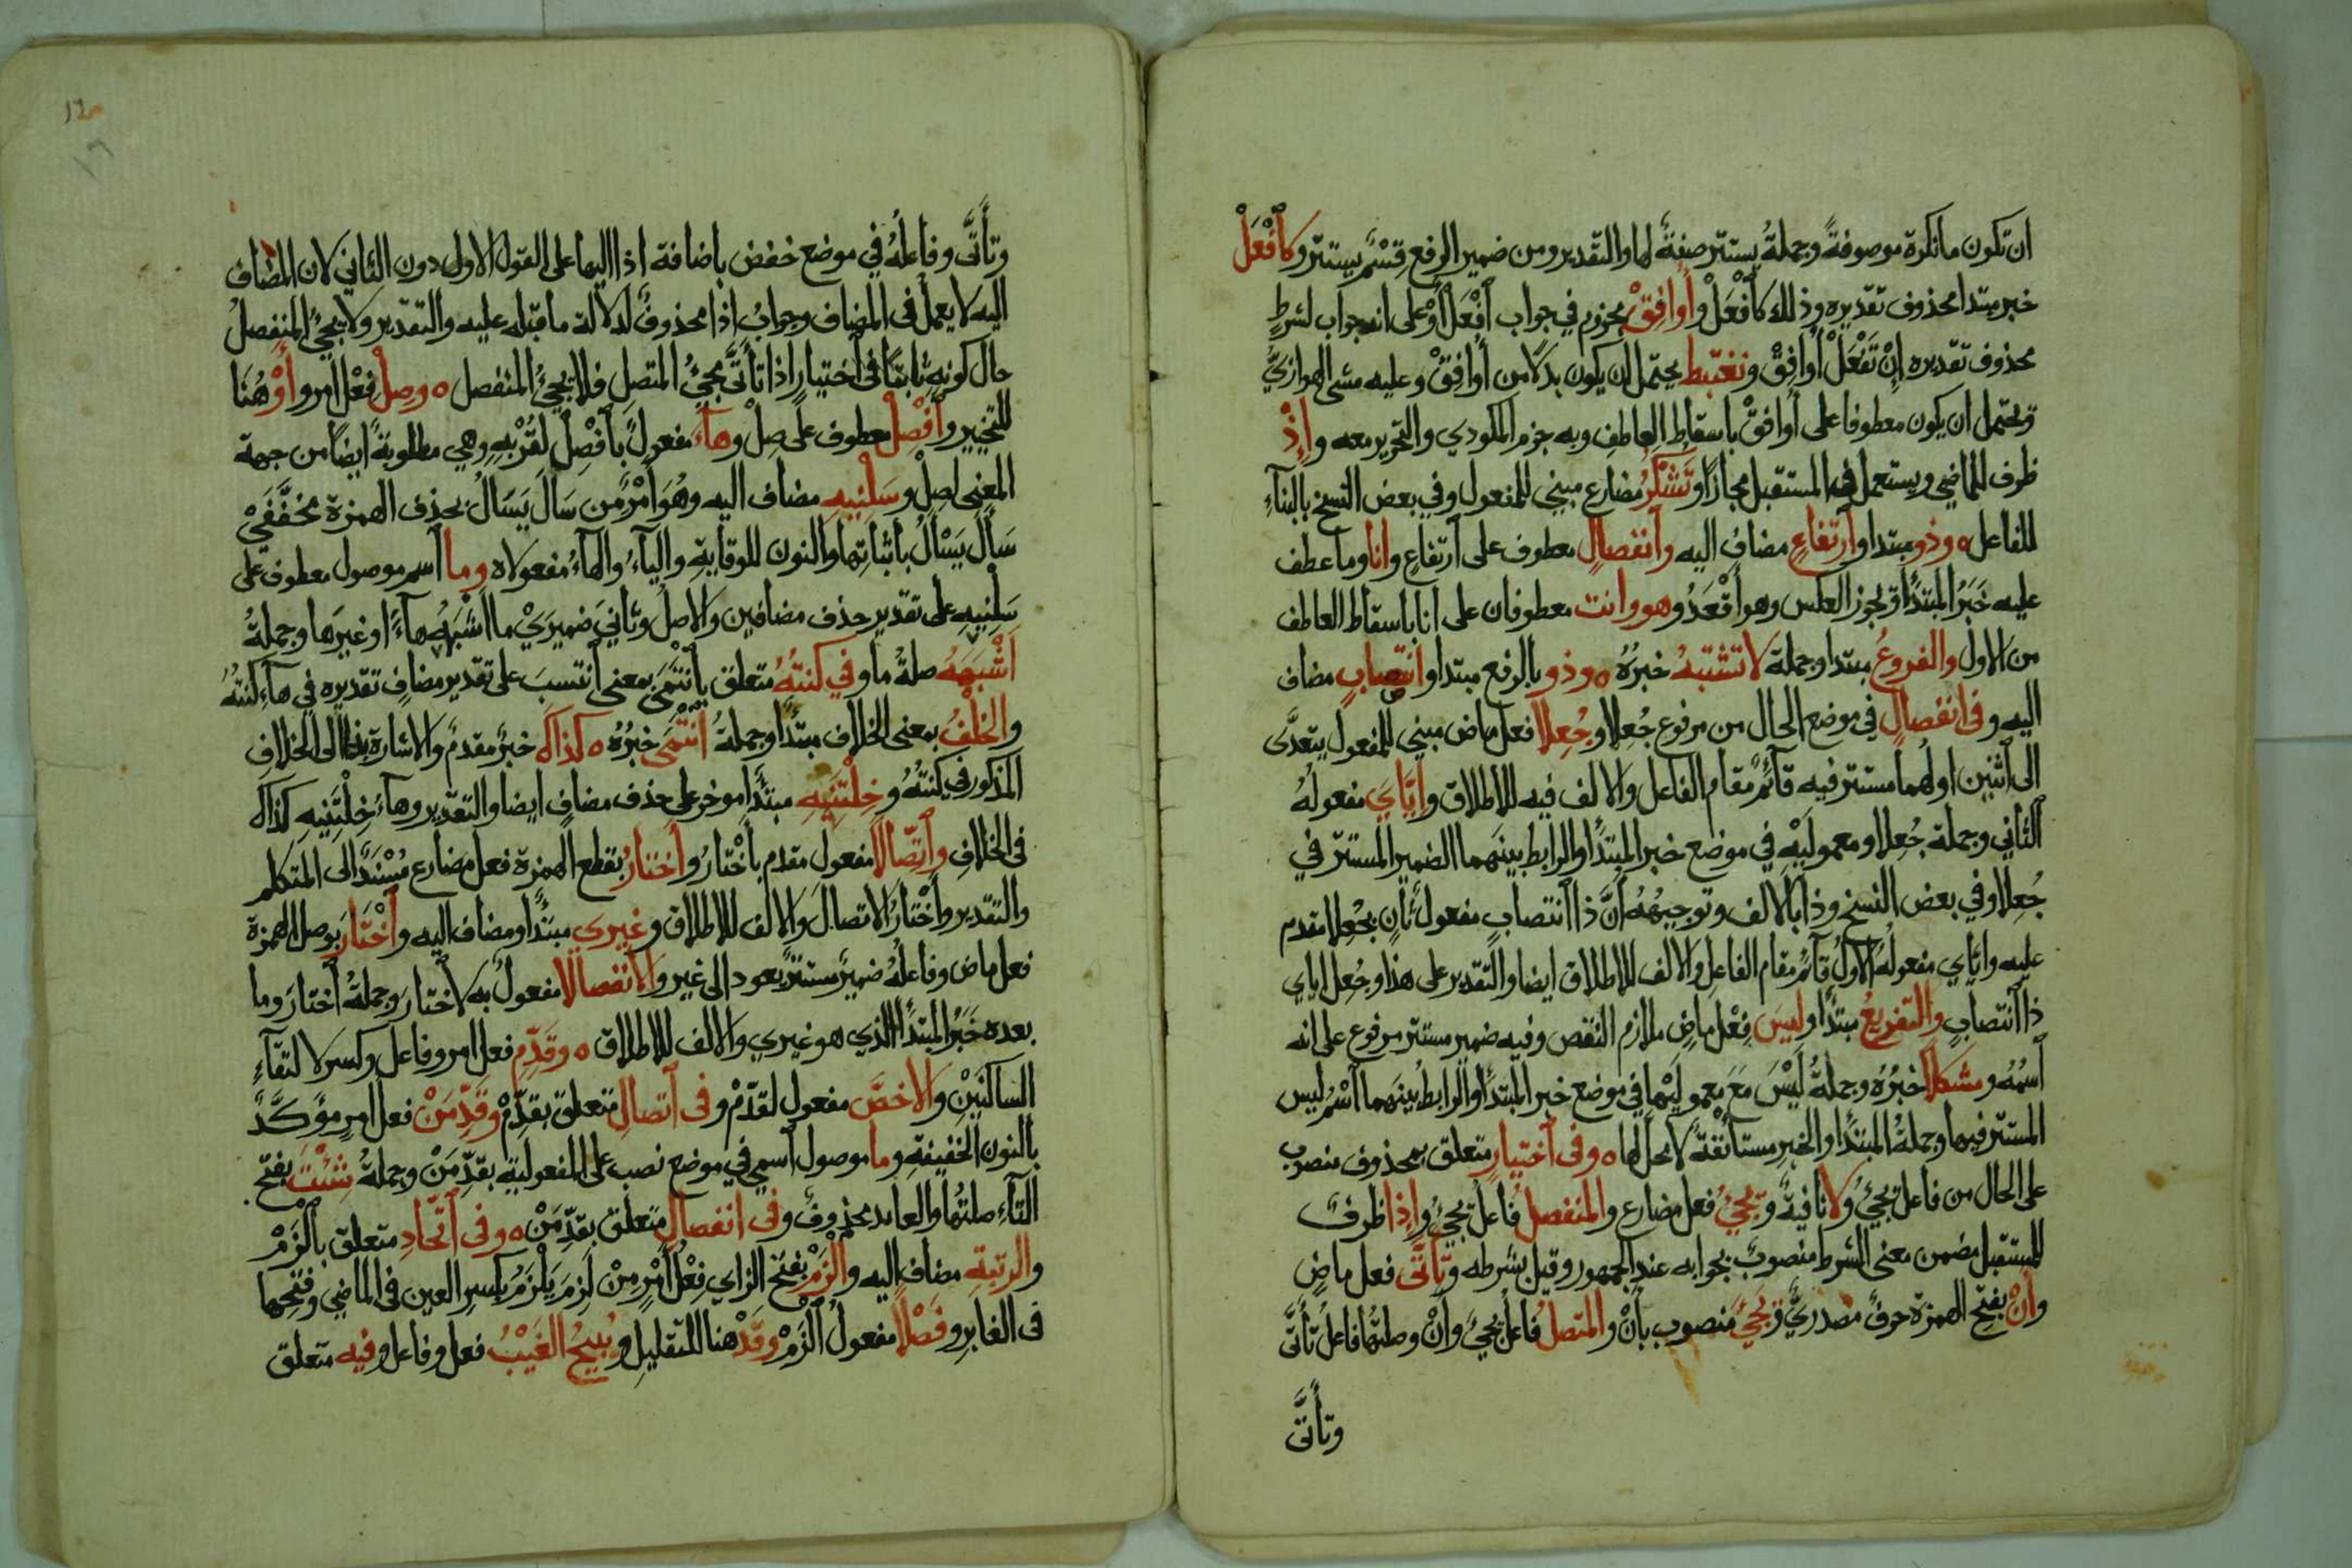 ان تكون ما نكرة موصوفةً وجملةُ يستتر صفةٌ لها والتقدير ومن ضمير الرفع قِسْمٌ يستتر وكَافْعَلْ
خبر مبتدا محذوف تقديره وذلك كَافْعَلْ وأُوَافِقْ مجزوم في جواب افْعَلْ أوْ على انه جواب لشرطٍ
محذوف تقديره إنْ تَفْعَلْ أُوَافِقْ ونغتبط يحتمل ان يكون بدلا من أُوَافِقْ وعليه مشى الهوازيّ
ويحتمل ان يكون معطوفا على أوافقْ باسقاطِ العاطفِ وبه جزم المكودي والتحرير معه وإِذْ
ظرف للماضي ويستعمل في المستقبل مجازًا وتُشْكَرُ مضارع مبني للمفعول وفي بعض النسخ بالبناءِ
للفاعل ٥ وذو مبتدا وارتفاعٍ مضاف اليه وانفصالٍ معطوف على ارتفاعٍ وانا وما عطف
عليه خَبَرُ المبتدأ ويجوز العكس وهو أقْعَدُ وهو وانت معطوفان على انا باسقاط العاطف
من الاول والفروعُ مبتدا وجملة لا تشتبهُ خبرُهُ ٥ وذو بالرفع مبتدا وانتصابٍ مضاف
اليه وفى انفصالٍ في موضع الحال من مرفوع جُعِلا وجُعِلا فعل ماض مبني للمفعول يتعدَّى
الى اثنين اولُهما مستتر فيه قائمٌ مقام الفاعل والالف فيه للاطلاق وإيَّايَ مفعولُهُ
الثاني وجملة جُعِلا ومعموليْهِ في موضع خبر المبتدأ والرابط بينهما الضمير المستتر في
جُعِلا وفي بعض النسخ وذا بالالف وتوجيهُهُ أنَّ ذا انتصابٍ مفعولٌ ثانٍ بجُعِلا مقدم
عليه وايّاي مفعولُهُ الاولُ قائم مقام الفاعلِ والالف للاطلاق ايضا والتقدير على هذا وجُعِل اياي
ذا انتصابٍ والتفريعُ مبتدأ وليسَ فِعْل ماضٍ ملازم النقص وفيه ضمير مستتر مرفوع على انه
اسمُهُ ومشكلا خبرُهُ وجملةُ لَيْسَ مَعَ معموليْها في موضع خبر المبتدأ والرابطُ بينهما اسْمُ ليس
المستتر فيها وجملةُ المبتدأ والخبرِ مستأنفةٌ لا محلّ لها ٥ وفى اختيارٍ متعلق بمحذوف منصوب
على الحال من فاعل يجيْءُ ولا نافيةٌ ويجيْءُ فعل مضارع والمنفصلُ فاعلُ يجيْءُ وإذا ظرفٌ
للمستقبل مضمن معنى الشرط منصوبٌ بجوابه عند الجمهور وقيل بشرطه وتأتَّى فعل ماضٍ
وأنْ بفتح الهمزة حرفٌ مصدريٌّ ويجيْءَ منصوب بأنْ والمتصلُ فاعل يجيْءَ وأنْ وصلتُها فاعلُ تأتَّى
وتأتَّى
وتأتَّى وفاعلُهُ في موضع خفض باضافة اذا اليها على القول الاول دون الثاني لان المضاف
اليه لا يعمل فى المضاف وجوابُ اذا محذوفٌ لدلالة ما قبله عليه والتقدير ولا يجيْءُ المنفصلُ
حال كونِهِ ثابتًا فى اختيارٍ اذا تأتَّى مجيْءُ المتصلِ فلا يجيْءُ المنفصل ٥ وصِلْ فعل امر وأوْ هُنَا
للتخيير وافْصِلْ معطوف على صِلْ وهاءَ مفعولٌ بافْصِلْ لقُرْبِهِ وهي مطلوبةٌ ايضًا من جهة
المعنى لصِلْ وسَلْنِيهِ مضاف اليه وهُوَ أَمْرٌ من سَالَ يَسَالُ بحذف الهمزة مخفَّفَيْ
سَأَلَ يَسْأَلُ باثباتِها والنون للوقايةِ والياءُ والهاءُ مفعولاه وما اسم موصول معطوف على
سَلْنِيهِ على تقدير حذف مضافين والاصلُ وثانيَ ضميرَيْ ما اشْبَهَهُ هاءً او غيرَها وجملةُ
اشْبَهَهُ صلةُ ما وفي كنتُهُ متعلق بانْتَمَى بمعنى انتسبَ على تقدير مضافٍ تقديره في هاءِ كنتُهُ
والخُلْفُ بمعنى الخلاف مبتدأ وجملةُ انْتَمَى خبرُهُ ٥ كذاكَ خبرٌ مقدمٌ والاشارة بذا الى الخلافِ
المذكور في كنتُهُ وخِلْتَنِيهِ مبتدأ موخر على حذف مضافٍ ايضا والتقدير وهاءُ خِلْتَنِيهِ كذاك
فى الخلافِ واتّصالا مفعول مقدم بأَخْتارُ وأختارُ بقطع الهمزة فعل مضارع مُسْنَدٌ الى المتكلم
والتقدير وأخْتارُ الاتصالَ والالف للاطلاق وغيري مبتدأ ومضاف اليه واخْتَارَ بوصل الهمزة
فعل ماض وفاعلُهُ ضميرٌ مستترٌ يعود الى غير والانفصالا مفعولٌ به لاختارَ وجملةُ اختارَ وما
بعده خَبَرُ المبتدأ الذي هو غيري والالف للاطلاق ٥ وقَدِّمِ فعل امر وفاعل وكسر لالتقاءِ
الساكنَيْنِ والاخصَّ مفعول لقدّمْ وفى اتصالِ متعلق بقدّمْ وقَدِّمَنْ فعل امرٍ مؤكَّدٌ
بالنون الخفيفةِ وما موصول اسمي في موضع نصب على المفعوليةِ بقدِّمَنْ وجملةُ شِئْتَ بفتح
التاءِ صلتُها والعايد محذوفٌ وفى انفصالِ متعلق بقدِّمَنْ ٥ وفى اتّحادِ متعلق بالْزَمْ
والرتبةِ مضاف اليه والْزَمْ بفتح الزاي فِعْلُ أَمْرٍ مِنْ لَزِمَ يَلْزَمُ بكسر العين فى الماضي وفتحِها
فى الغابرِ وفَصْلا مفعولُ الْزَمْ وقَدْ هنا للتقليل ويُبيحُ الغَيْبُ فعل وفاعل وفيه متعلق